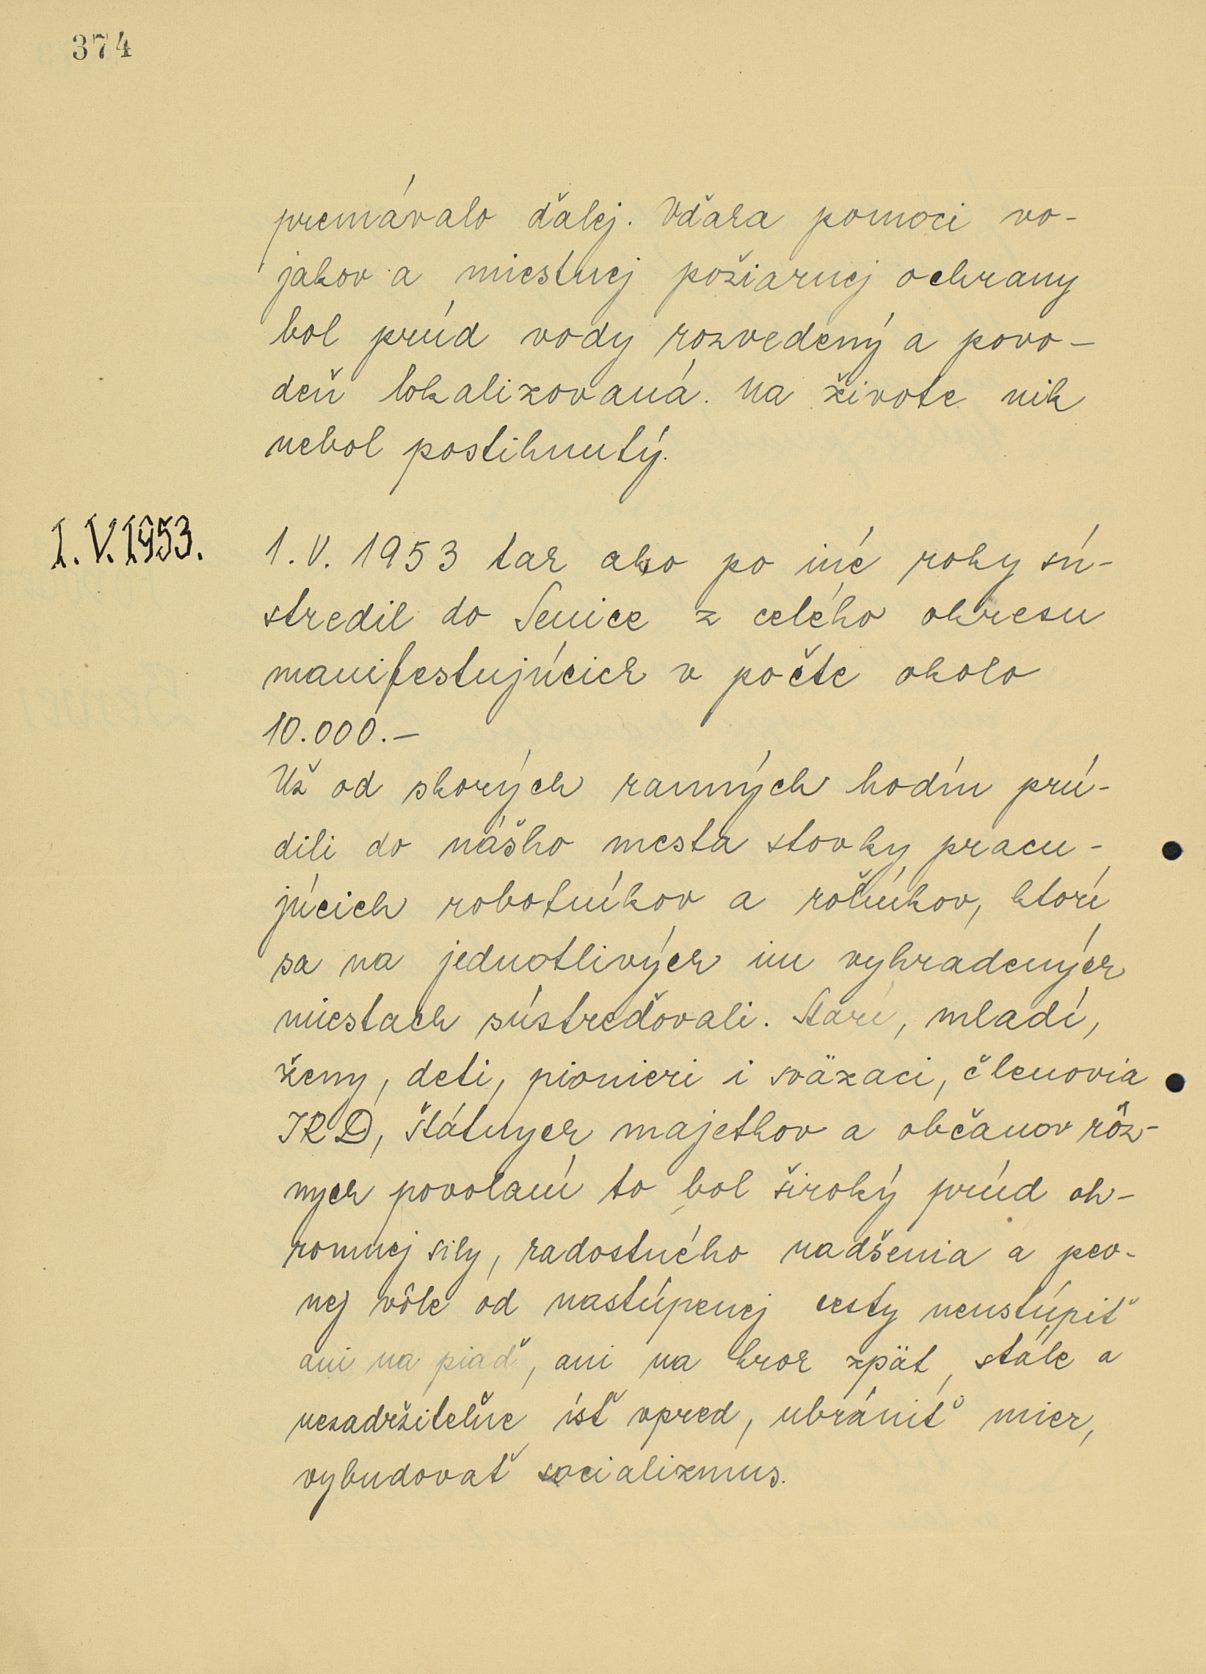 374
premávalo ďalej. Vďaka pomoci vo-
jakov a miestnej požiarnej ochrany
bol prúd vody rozvedený a povo-
deň lokalizovaná. Na živote nik
nebol postihnutý.
1.V.1953.
1. V. 1953 tak ako po iné roky sú-
stredil do Senice z celého okresu
manifestujúcich v počte okolo
10.000.-
Už od skorých ranných hodín prú-
dili do nášho mesta stovky pracu-
júcich robotníkov a roľníkov, ktorí
sa na jednotlivých im vyhradených
miestach sústreďovali. Starí, mladí,
ženy, deti, pionieri i sväzaci, členovia
JRD, štátnych majetkov a občanov rôz-
nych povolaní to bol široký prúd oh-
romnej sily, radostného nadšenia a pev-
nej vôle od nastúpenej cesty neustúpiť
ani na piaď, ani na krok zpät, stále a
nezadržiteľne ísť vpred, ubrániť mier,
vybudovať socializmus.